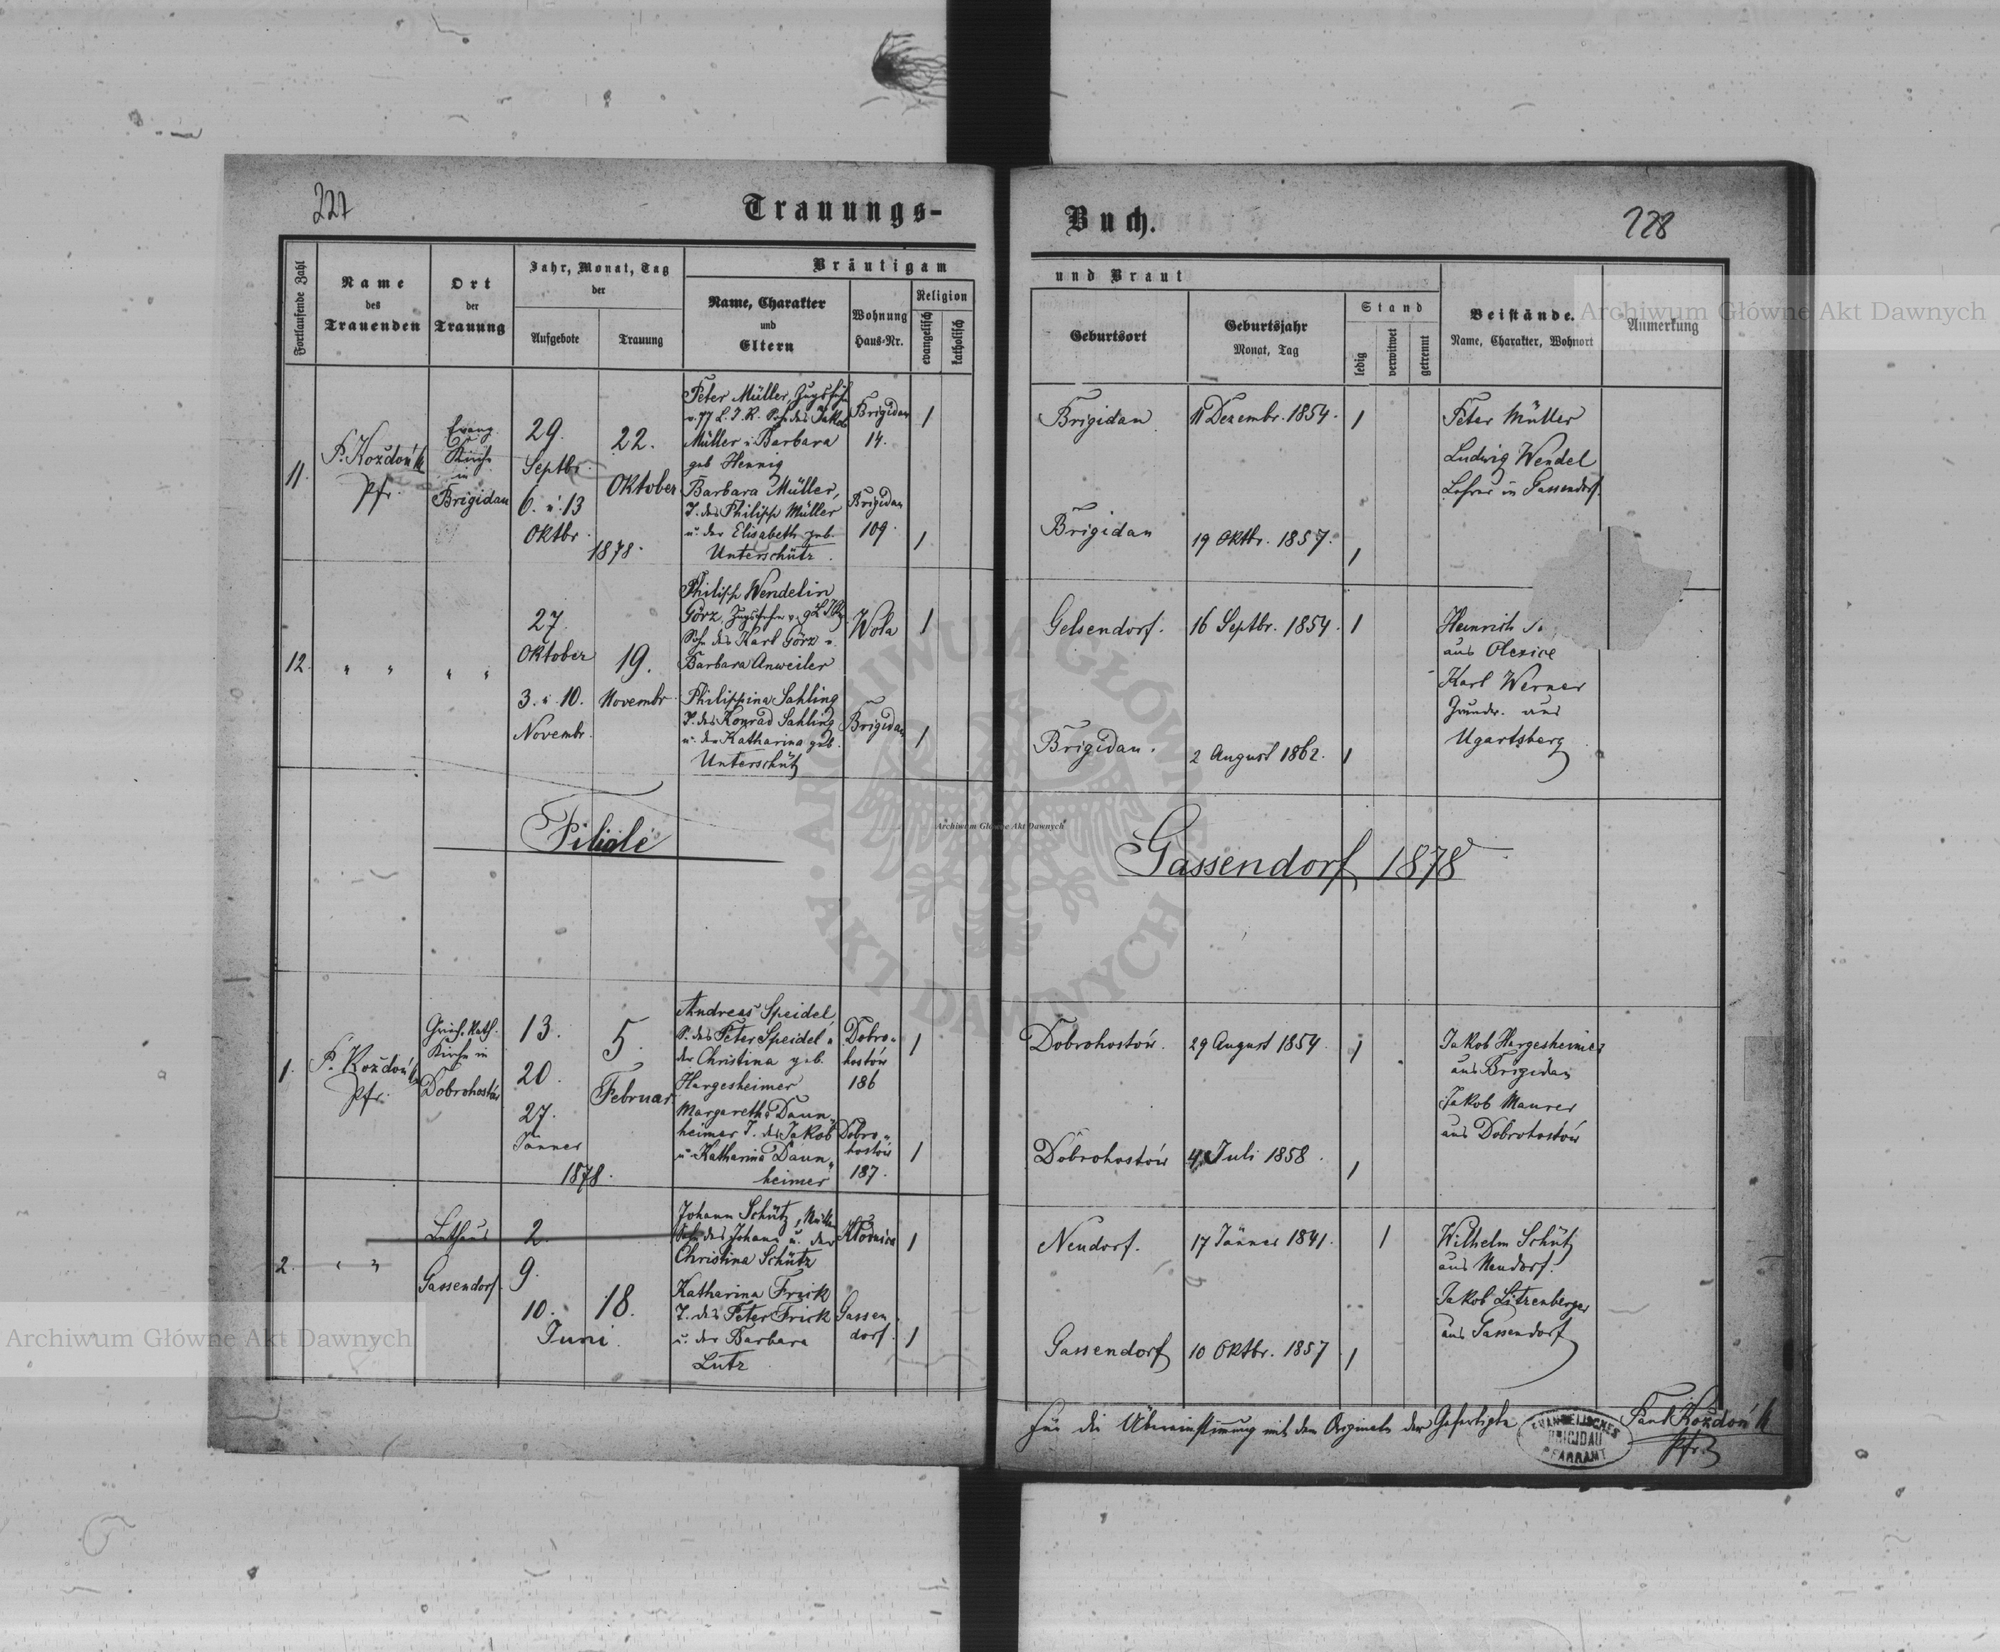 227
Trauungs-
Fortlaufende Zahl
Name
des
Trauenden
Ort
der
Trauung
Jahr, Monat, Tag
der
Aufgebote
Trauung
Bräutigam
Name, Charakter
und
Eltern
Wohnung
Haus-Nr.
Religion
evangelisch
katholisch
11.
P. Koždoń
Pfr.
Evang.
Kirche
in
Brigidau
29.
Septbr.
6. u. 13
Oktbr.
22.
Oktober
1878.
Peter Müller,
Sohn des Jakob
Müller u. Barbara
geb Hennig
Brigidau
14.
1
Barbara Müller,
T. des Philipp Müller
u. der Elisabeth geb.
Unterschütz.
Brigidau
109.
1
12.
" "
" "
27.
Oktober
3. u. 10.
Novembr.
19.
Novembr.
Philipp Wendelin
Görz,
Sohn des Karl Görz u.
Barbara Anweiler
Wola
1
Philippina Sahling
T. des Konrad Sahling
u. der Katharina geb.
Unterschütz
Brigidau
1
Filiale
1.
P. Koždoń
Pfr.
Griech. Kath.
Kirche in
Dobrohostów
13.
20.
27.
Jänner
1878.
5.
Februar
Andreas Speidel
S. des Peter Speidel u
der Christina geb.
Hargesheimer
Dobro-
hostów
186
1
Margaretha Daun-
heimer T. des Jakob
u. Katharina Daun-
heimer
Dobro-
hostów
187.
1
2.
" "
Bethaus
Gassendorf.
2.
9.
10.
Juni.
18.
Johann Schütz,
Sohn des Johann u. der
Christina Schütz
1
Katharina Frick
T. des Peter Frick
u. der Barbara
Lutz
Gassen-
dorf.
1
Buch.
228
und Braut
Geburtsort
Geburtsjahr
Monat, Tag
Stand
ledig
verwitwet
getrennt
Beistände.
Name, Charakter, Wohnort
Anmerkung
Brigidau
11 Dezembr. 1854.
1
Peter Müller
Ludwig Wendel
Lehrer in Gassendorf.
Brigidau
19 Oktbr. 1857.
1
Gelsendorf.
16 Septbr. 1854.
1
Heinrich
aus Olexice
Karl Werner
Grundw. aus
Ugartsberg
Brigidau.
2 August 1862.
1
Gassendorf 1878
Dobrohostów.
29 August 1854.
1
Jakob Hargesheimer
aus Brigidau
Jakob Maurer
aus Dobrohostów
Dobrohostów
4. Juli 1858.
1
Neudorf.
17 Jänner 1841.
1
Wilhelm Schütz
aus Neudorf.
Jakob Litzenberger
aus Gassendorf
Gassendorf
10 Oktbr. 1857.
1
Für die Übereinstimmung mit dem Originale der Gefertigte
EVANGELISCHES
BRIGIDAU
PFARRAMT
Paul Koždoń
Pfr.
Archiwum Główne Akt Dawnych
Archiwum Główne Akt Dawnych
Archiwum Główne Akt Dawnych
ARCHIWUM GŁÓWNE
AKT DAWNYCH